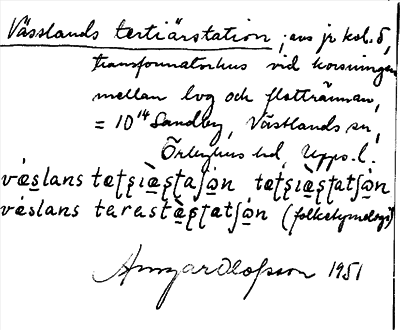 Västlands tertiärstation, ens jr ksl. 5,
transformatorhus vid korsningen
mellan lvg och flottrännan,
= 10¹⁴ Sandby, Västlands sn,
Örbyhus hd, Upps. l.
vɛ́slans tɛtʂiɛ̀ʂtaʃón tɛtʂiɛ̀ʂtatʃón
vɛ́slans tarastɛ̀ʂtɛtʃón (folketymologi)
Anngar Olofsson 1951